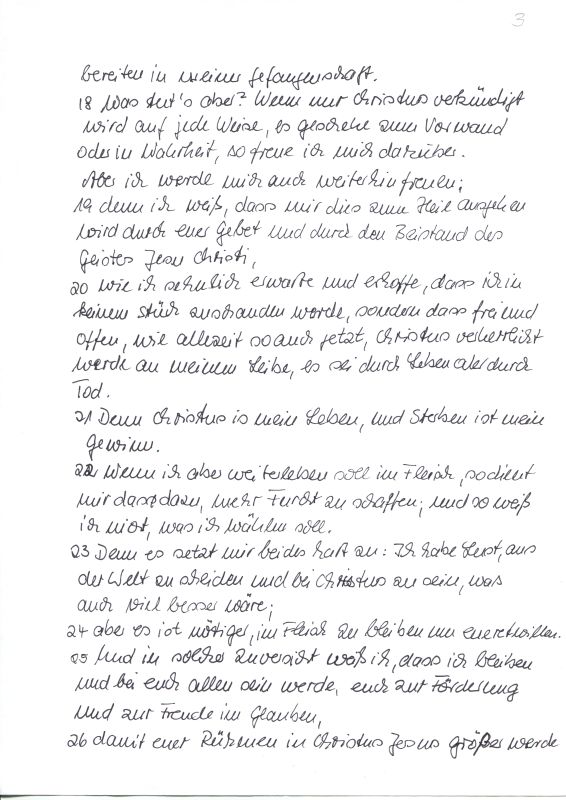 3
bereiten in meiner Gefangenschaft.
18 Was tut's aber? Wenn nur Christus verkündigt
wird auf jede Weise, es geschehe zum Vorwand
oder in Wahrheit, so freue ich mich darüber.
Aber ich werde mich auch weiterhin freuen;
19 denn ich weiß, dass mir dies zum Heil ausgehen
wird durch euer Gebet und durch den Beistand des
Geistes Jesu Christi,
20 wie ich sehnlich erwarte und erhoffe, dass ich in
keinem Stück zuschanden werde, sondern dass frei und
offen, wie allezeit so auch jetzt, Christus verherrlicht
werde an meinem Leibe, es sei durch Leben oder durch
Tod.
21 Denn Christus is mein Leben, und Sterben ist mein
Gewinn.
22 Wenn ich aber weiterleben soll im Fleisch, so dient
mir das dazu, mehr Frucht zu schaffen; und so weiß
ich nicht, was ich wählen soll.
23 Denn es setzt mir beides hart an: Ich habe Lust, aus
der Welt zu scheiden und bei Christus zu sein, was
auch viel besser wäre;
24 aber es ist nötiger, im Fleisch zu bleiben um euretwillen.
25 Und in solcher Zuversicht weiß ich, dass ich bleiben
und bei euch allen sein werde, euch zur Förderung
und zur Freude im Glauben,
26 damit euer Rühmen in Christus Jesus größer werde